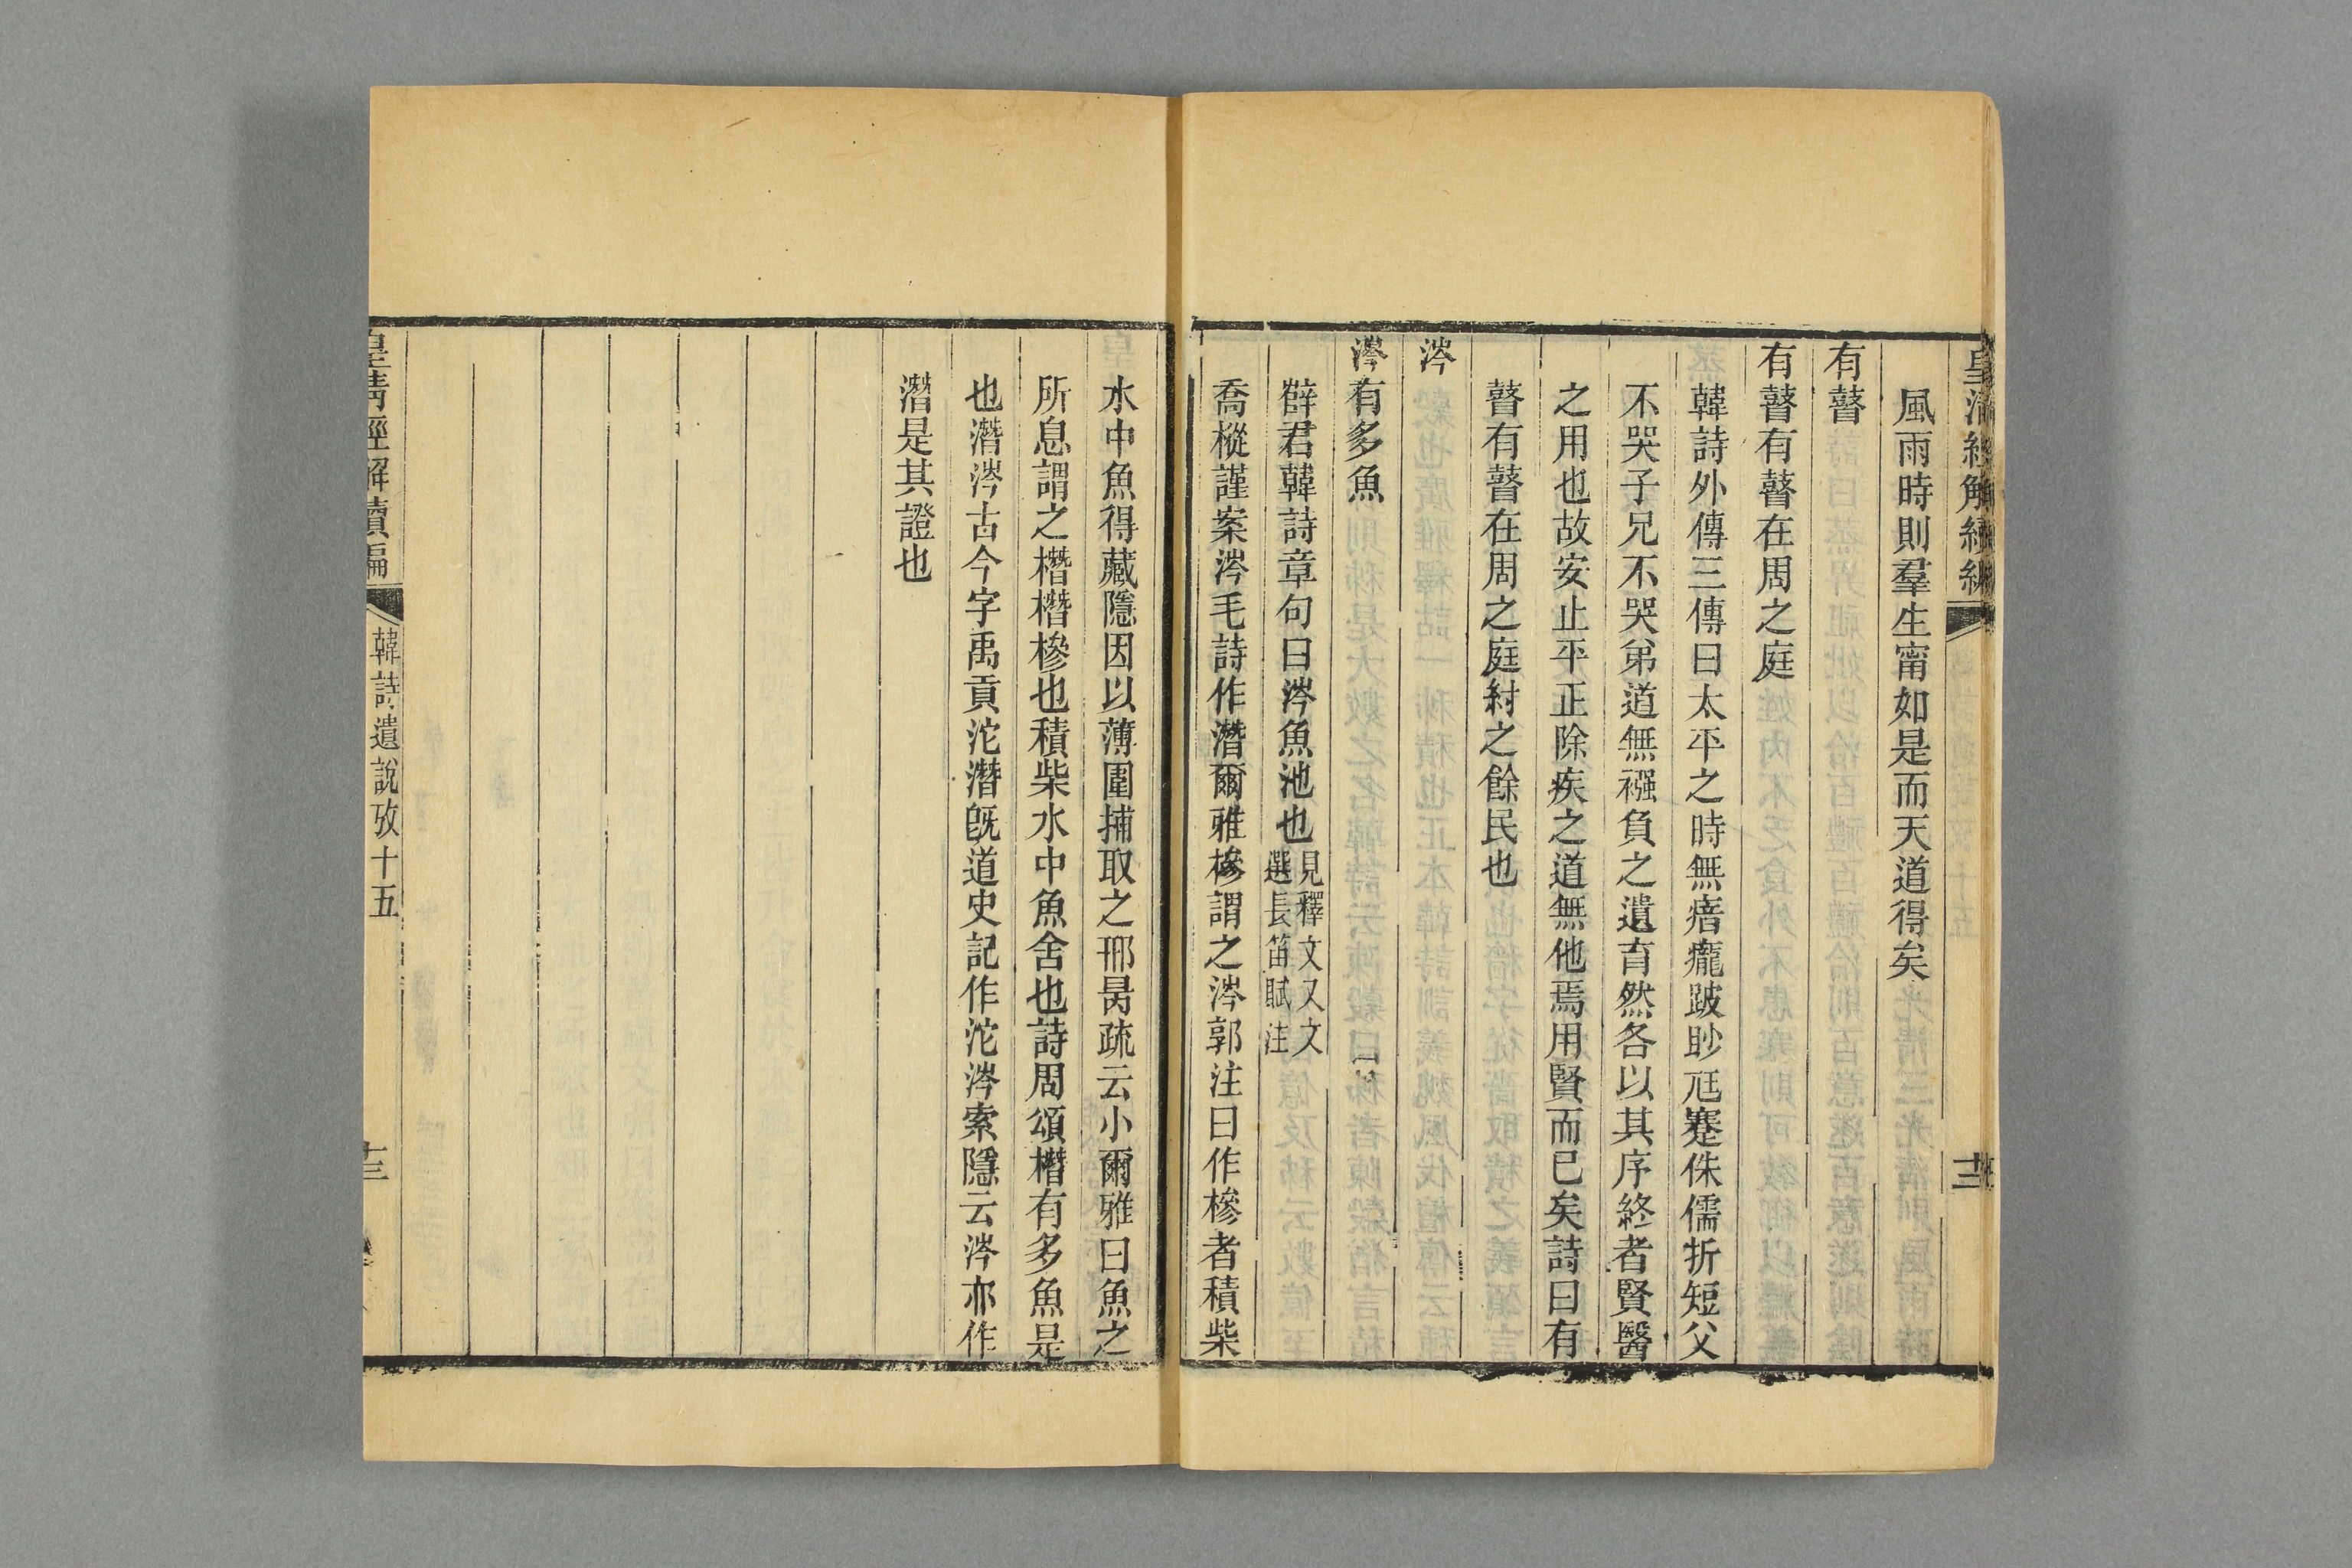 皇清經解續編
十三
風雨時則羣生甯如是而天道得矣
有瞽
有瞽有瞽在周之庭
韓詩外傳三傳曰太平之時無瘖㾿跛眇尪蹇侏儒折短父
不哭子兄不哭弟道無襁負之遺育然各以其序終者賢醫
之用也故安止平正除疾之道無他焉用賢而已矣詩曰有
瞽有瞽在周之庭紂之餘民也
涔
涔有多魚
薛君韓詩章句曰涔魚池也見釋文又文選長笛賦注
喬樅謹案涔毛詩作潛爾雅槮謂之涔郭注曰作槮者積柴
水中魚得藏隱因以薄圍捕取之邢昺疏云小爾雅曰魚之
所息謂之橬橬槮也積柴水中魚舍也詩周頌橬有多魚是
也潛涔古今字禹貢沱潛旣道史記作沱涔索隱云涔亦作
潛是其證也
皇清經解續編
韓詩遺說攷十五
十三